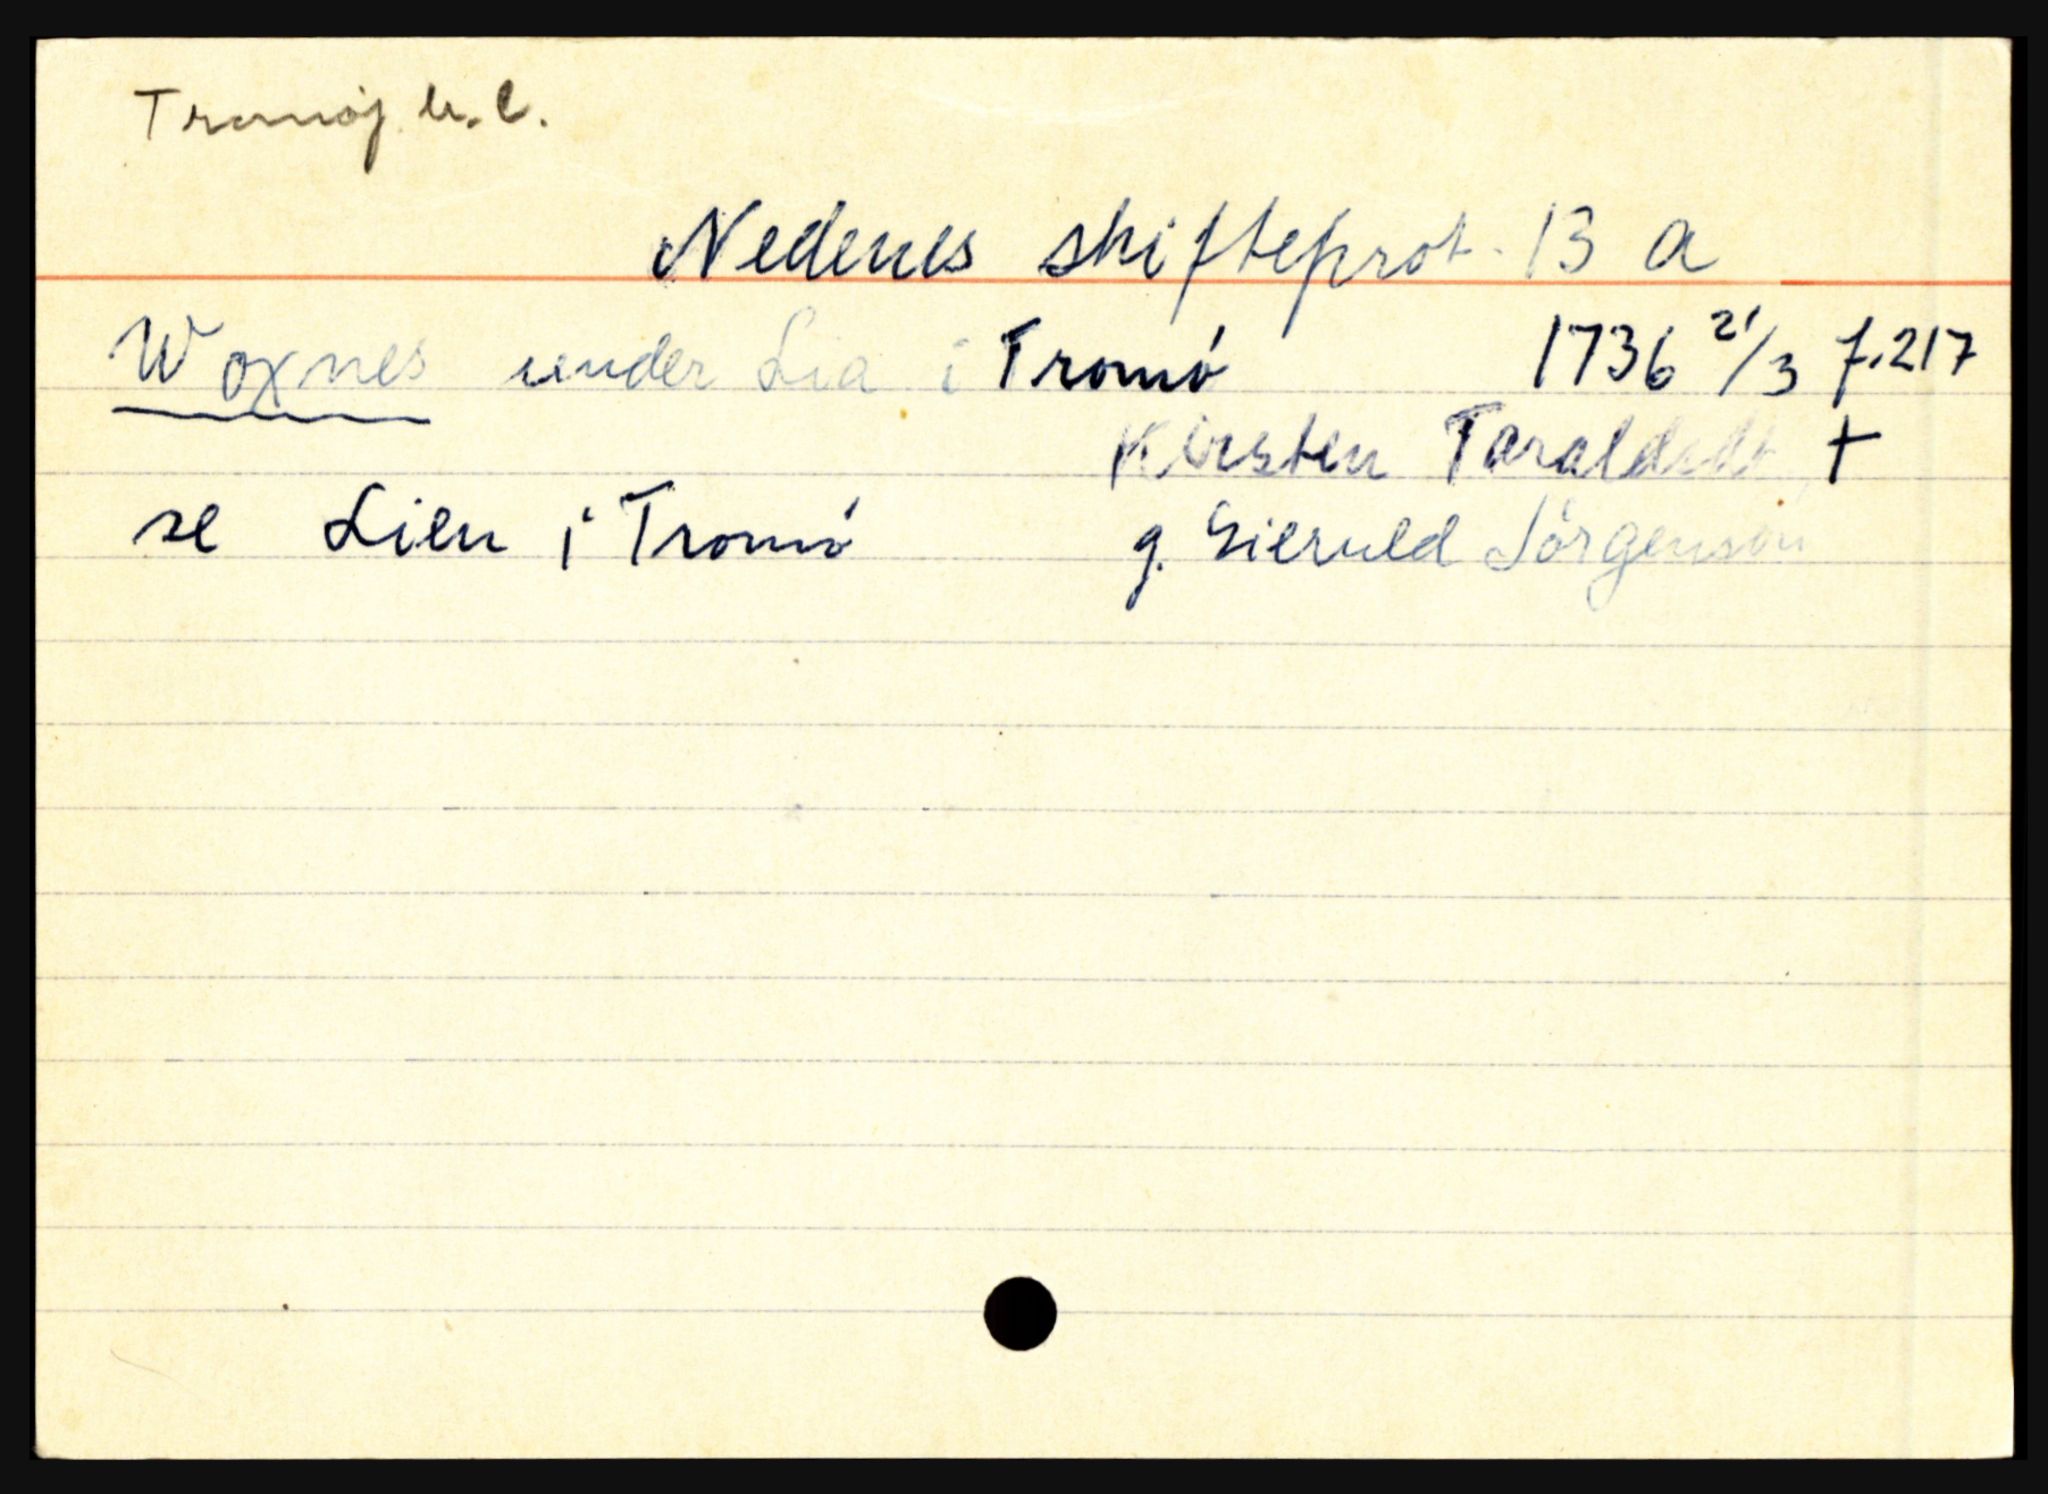 Tromøj u. l.
Nedenes skifteprot. 13 a
Woxnes under Lia i Tromö 1736 21/3 f. 217
Kirsten Taraldsdt, +
se Lien i Tromö g. Sieruld Jörgensøn